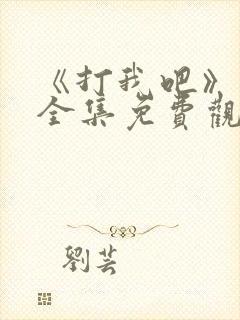 《打我吧》
全集免費觀
劉芸